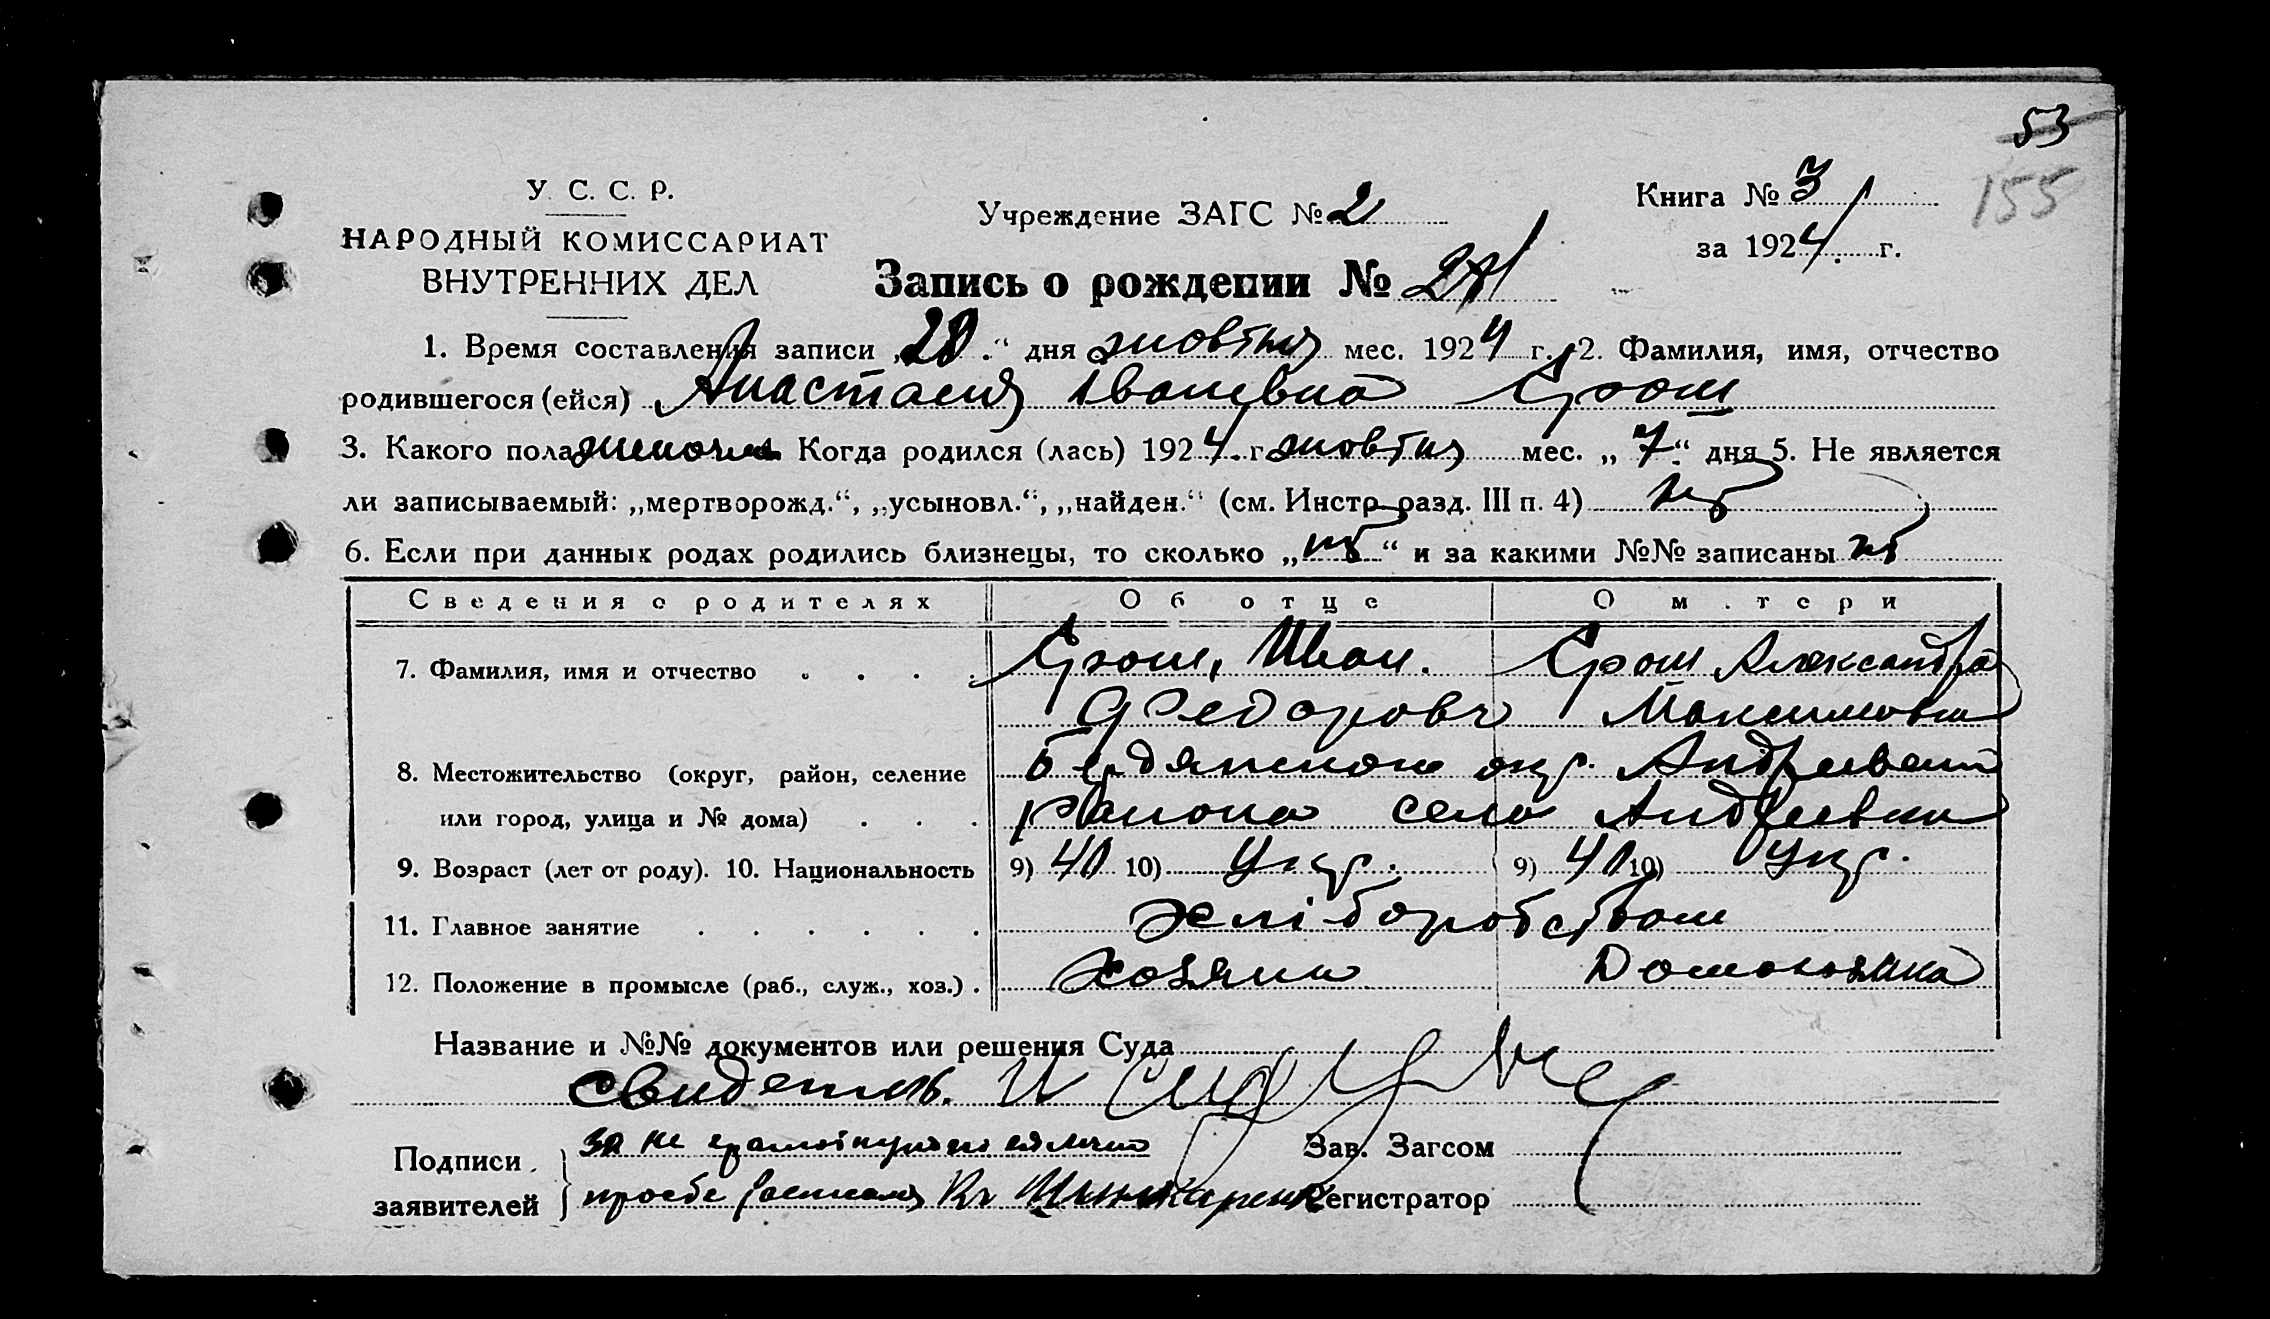 53
155
У. С. С. Р.
НАРОДНЫЙ КОМИССАРИАТ
ВНУТРЕННИХ ДЕЛ
Учреждение ЗАГС № 2
Книга № 3
за 1924 г.
Запись о рождении №
1. Время составления записи „20“ дня жовтня мес. 1924 г. 2. Фамилия, имя, отчество
родившегося (ейся) Анастасия Івановна Ерош
3. Какого пола женоча Когда родился (лась) 1924 г. жовтня мес. „7“ дня 5. Не является
ли записываемый: „мертворожд.“, „усыновл.“, „найден.“ (см. Инстр. разд. III п. 4) нт
6. Если при данных родах родились близнецы, то сколько „нт“ и за какими №№ записаны нт
Сведения о родителях Об отце О матери
7. Фамилия, имя и отчество Ерош, Иван. Ерош Александра
Федорович Максимовна
8. Местожительство (округ, район, селение Бердянской окр. Андреевсий
или город, улица и № дома) района село Андреевки
9. Возраст (лет от роду). 10. Национальность 9) 40 10) Укр. 9) 40 10) Укр.
11. Главное занятие хліборобством
12. Положение в промысле (раб., служ., хоз.) Хозяин Домохозяйка
Название и №№ документов или решения Суда
свидетель. И
Подписи за не грамотную по личной Зав. Загсом
заявителей просьбе росписался Регистратор